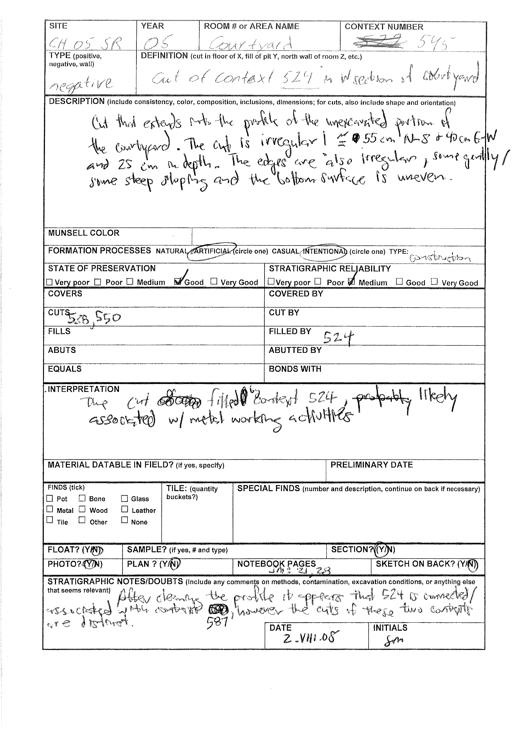 SITE YEAR ROOM # or AREA NAME CONTEXT NUMBER
CH 05 SR 05 Courtyard 545
TYPE (positive, negative, wall) DEFINITION (cut in floor of X, fill of pit Y, north wall of room Z, etc.)
negative Cut of context 524 in W section of courtyard
DESCRIPTION (include consistency, color, composition, inclusions, dimensions; for cuts, also include shape and orientation)
Cut that extends into the profile of the unexcavated portion of
the courtyard. The cut is irregular, 55 cm N-S + 40 cm E-W
and 25 cm in depth. The edges are also irregular, some gently/
some steep sloping and the bottom surface is uneven.
MUNSELL COLOR
FORMATION PROCESSES NATURAL/ARTIFICIAL (circle one) CASUAL/INTENTIONAL (circle one) TYPE: construction
STATE OF PRESERVATION STRATIGRAPHIC RELIABILITY
Very poor Poor Medium Good Very Good Very poor Poor Medium Good Very Good
COVERS COVERED BY
CUTS 528, 550 CUT BY
FILLS FILLED BY 524
ABUTS ABUTTED BY
EQUALS BONDS WITH
INTERPRETATION
The cut filled by context 524, probably likely
associated w/ metal working activities
MATERIAL DATABLE IN FIELD? (if yes, specify) PRELIMINARY DATE
FINDS (tick) TILE: (quantity buckets?) SPECIAL FINDS (number and description, continue on back if necessary)
Pot Bone Glass
Metal Wood Leather
Tile Other None
FLOAT? (Y/N) SAMPLE? (if yes, # and type) SECTION? (Y/N)
PHOTO? (Y/N) PLAN ? (Y/N) NOTEBOOK PAGES SKETCH ON BACK? (Y/N)
STRATIGRAPHIC NOTES/DOUBTS (Include any comments on methods, contamination, excavation conditions, or anything else
that seems relevant) After cleaning the profile it appears that 524 is connected/
associated with context 587, however the cuts of these two contexts
are distinct.
DATE INITIALS
2.VIII.05 SM